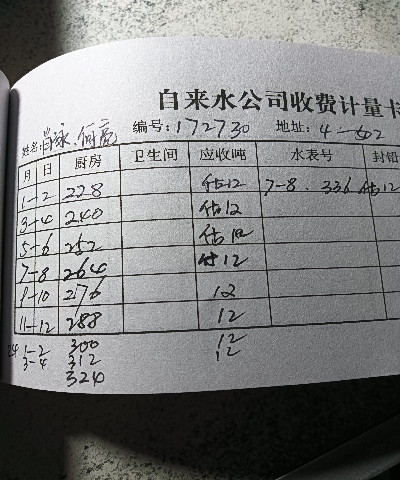 自来水公司收费计量卡
姓名: 肖泳.何亮 编号: 172730 地址: 4-602
月 日 厨房 卫生间 应收吨 水表号 封铅
1-2 228 估12 7-8. 336 估12
3-4 240 估12
5-6 252 估12
7-8 264 估12
9-10 276 12
11-12 288 12
24 1-2 300 12
3-4 312 12
324